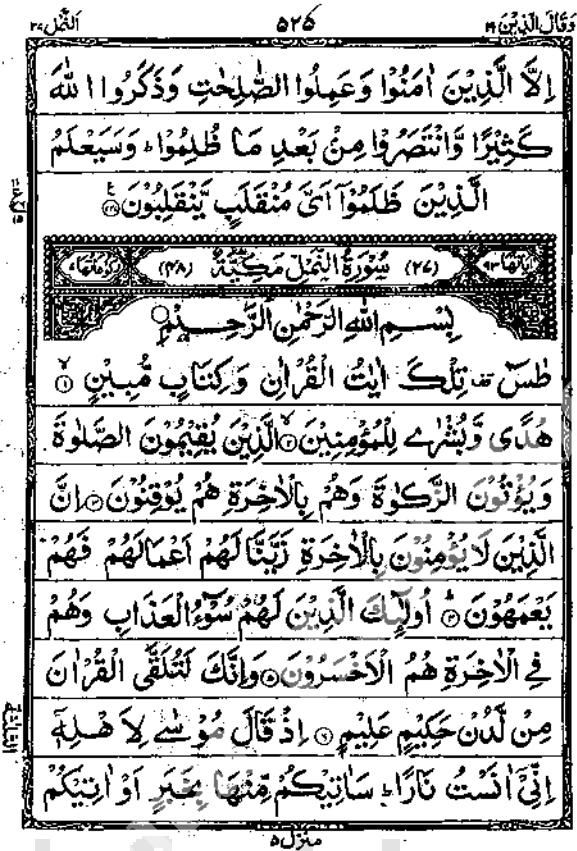 وَقَالَ الَّذِيْنَ ۱۹ ۵۲۵ اَلنَّمْل ۲۷
اِلَّا الَّذِيْنَ اٰمَنُوْا وَعَمِلُوا الصّٰلِحٰتِ وَذَكَرُوا اللّٰهَ
كَثِيْرًا وَّانْتَصَرُوْا مِنْۢ بَعْدِ مَا ظُلِمُوْا ؕ وَسَيَعْلَمُ
الَّذِيْنَ ظَلَمُوْۤا اَىَّ مُنْقَلَبٍ يَّنْقَلِبُوْنَ ﴿۲۲۷﴾
اٰيَاتُهَا ۹۳ (۲۷) سُوْرَةُ النَّمْلِ مَكِّيَّةٌ (۴۸) رُكُوْعَاتُهَا ۷
بِسْمِ اللّٰهِ الرَّحْمٰنِ الرَّحِيْمِ
طٰسٓ ࣞ تِلْكَ اٰيٰتُ الْقُرْاٰنِ وَكِتَابٍ مُّبِيْنٍ ﴿۱﴾ ۙ
هُدًى وَّبُشْرٰى لِلْمُؤْمِنِيْنَ ﴿۲﴾ ۙ الَّذِيْنَ يُقِيْمُوْنَ الصَّلٰوةَ
وَيُؤْتُوْنَ الزَّكٰوةَ وَهُمْ بِالْاٰخِرَةِ هُمْ يُوْقِنُوْنَ ﴿۳﴾ اِنَّ
الَّذِيْنَ لَا يُؤْمِنُوْنَ بِالْاٰخِرَةِ زَيَّنَّا لَهُمْ اَعْمَالَهُمْ فَهُمْ
يَعْمَهُوْنَ ﴿۴﴾ ؕ اُولٰٓئِكَ الَّذِيْنَ لَهُمْ سُوْٓءُ الْعَذَابِ وَهُمْ
فِى الْاٰخِرَةِ هُمُ الْاَخْسَرُوْنَ ﴿۵﴾ وَاِنَّكَ لَتُلَقَّى الْقُرْاٰنَ
مِنْ لَّدُنْ حَكِيْمٍ عَلِيْمٍ ﴿۶﴾ اِذْ قَالَ مُوْسٰى لِاَهْلِهٖۤ
اِنِّىْۤ اٰنَسْتُ نَارًا ؕ سَاٰتِيْكُمْ مِّنْهَا بِخَبَرٍ اَوْ اٰتِيْكُمْ
منزل ۵